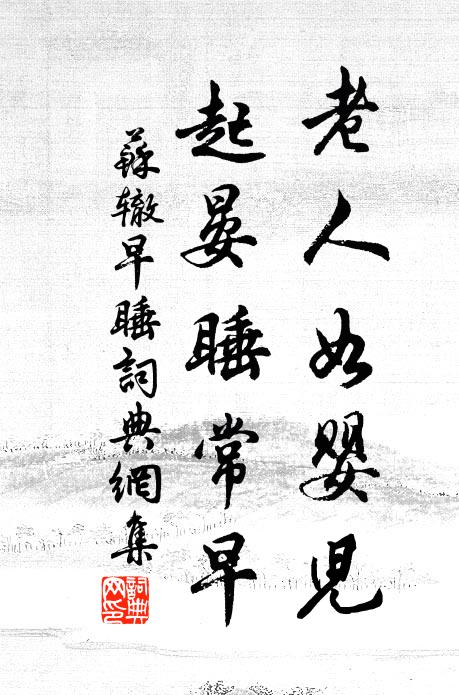 老人如嬰兒
起晏睡常早
蘇辙早睡詞典網集
詞典网印